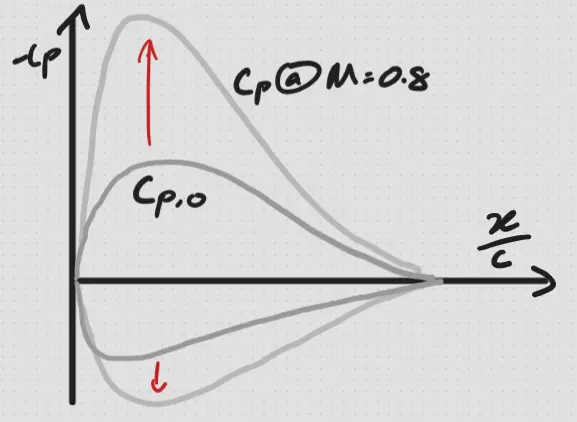 -Cp
Cp @ M=0.8
Cp,0
x
c